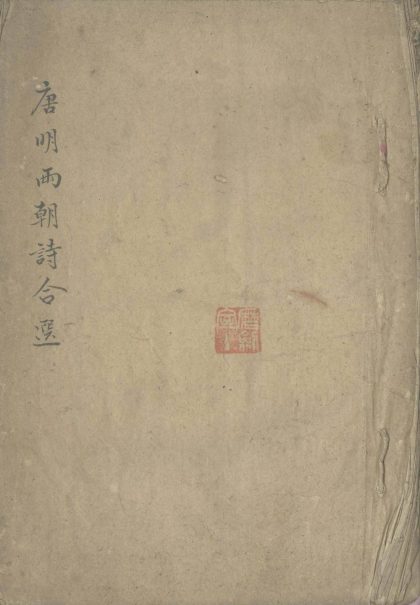 唐明兩朝詩合選